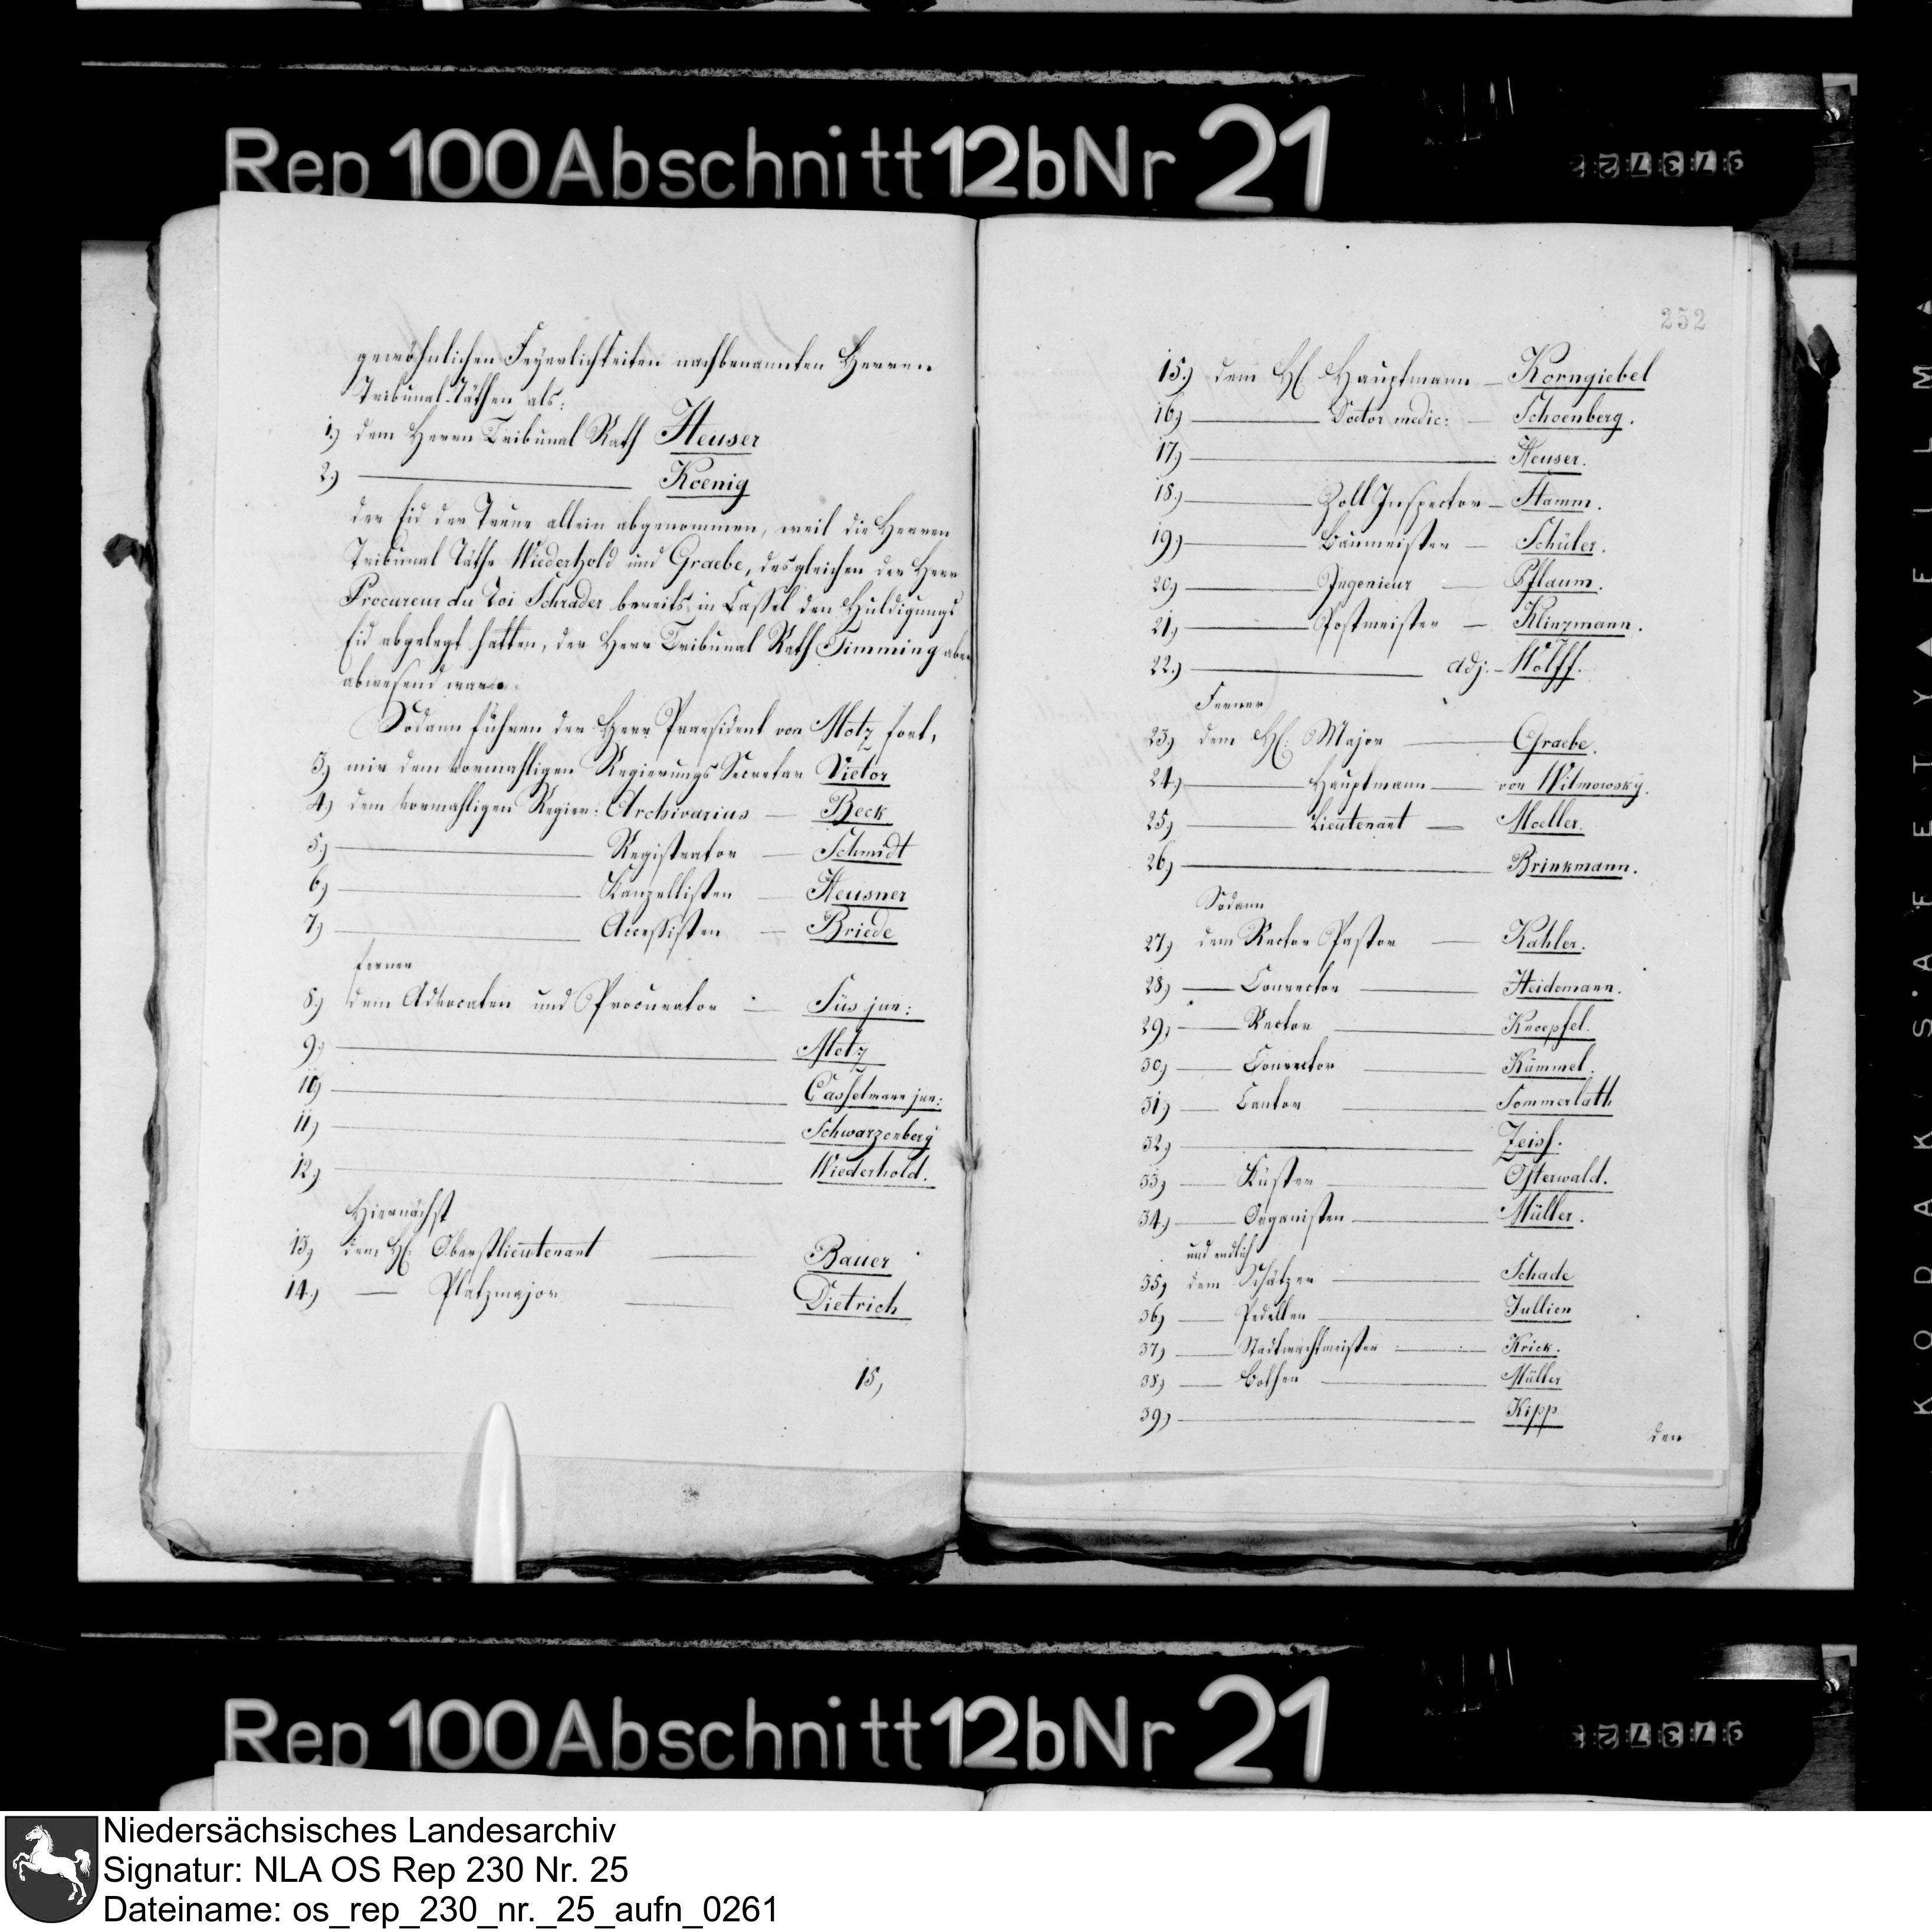 Rep 100 Abschnitt 12b Nr 21
gewöhnlichen Feyerlichkeiten nachbenannten Herren
Tribunal-Räthen als:
1.) dem Herrn Tribunal Rath Heuser
2.) — Koenig
der Eid der Treue allein abgenommen, weil die Herren
Tribunal Räthe Wiederhold und Graebe, desgleichen der Herr
Procureur du Roi Schrader bereits in Cassel den Huldigungs
Eid abgelegt hatten, der Herr Tribunal Rath Timming aber
abwesend war.
Sodann fuhren der Herr Praesident von Motz fort,
3.) mir dem vormahligen Regierungs Secretar Vietor
4.) dem vormahligen Regier: Archivarius — Beck
5.) — Registrator — Schmidt
6.) — Kanzellisten — Heusner
7.) — Accessisten — Briede
ferner
8.) dem Advocaten und Procurator — Süs jun:
9.) — Motz
10) — Casselmann jun:
11) — Schwarzenberg
12.) — Wiederhold.
Hiernächst
13) dem H: Oberstlieutenant — Bauer
14.) — Platzmajor — Dietrich
15,
252
15.) dem H: Hauptmann — Korngiebel
16) — Doctor medic: — Schoenberg.
17) — Heuser.
18.) — Zoll Inspector — Stamm.
19) — Baumeister — Schüler.
20) — Ingenieur — Pflaum.
21.) — Postmeister — Klinzmann.
22.) — adj. — Wolff.
Ferner
23) dem H: Major — Graebe.
24) — Hauptmann — von Wilmowsky.
25) — Lieutenant — Moeller.
26) — Brinkmann.
Sodann
27) dem Rector Pastor — Kahler.
28) — Conrector — Heidemann.
29) — Rector — Knoepfel.
30) — Conrector — Kümmel.
31) — Cantor — Sommerlath
32) — Zeiss.
33) — Küster — Osterwald.
34.) — Organisten — Müller.
und endlich
35) dem Schätzer — Schade
36) — Pedellen — Jullien
37) — Stadtwachtmeister — Krick.
38) — Bothen — Müller
39) — Kipp
den
KODAK·SAFETY▲FILM▲
Rep 100 Abschnitt 12b Nr 21
Niedersächsisches Landesarchiv
Signatur: NLA OS Rep 230 Nr. 25
Dateiname: os_rep_230_nr._25_aufn_0261